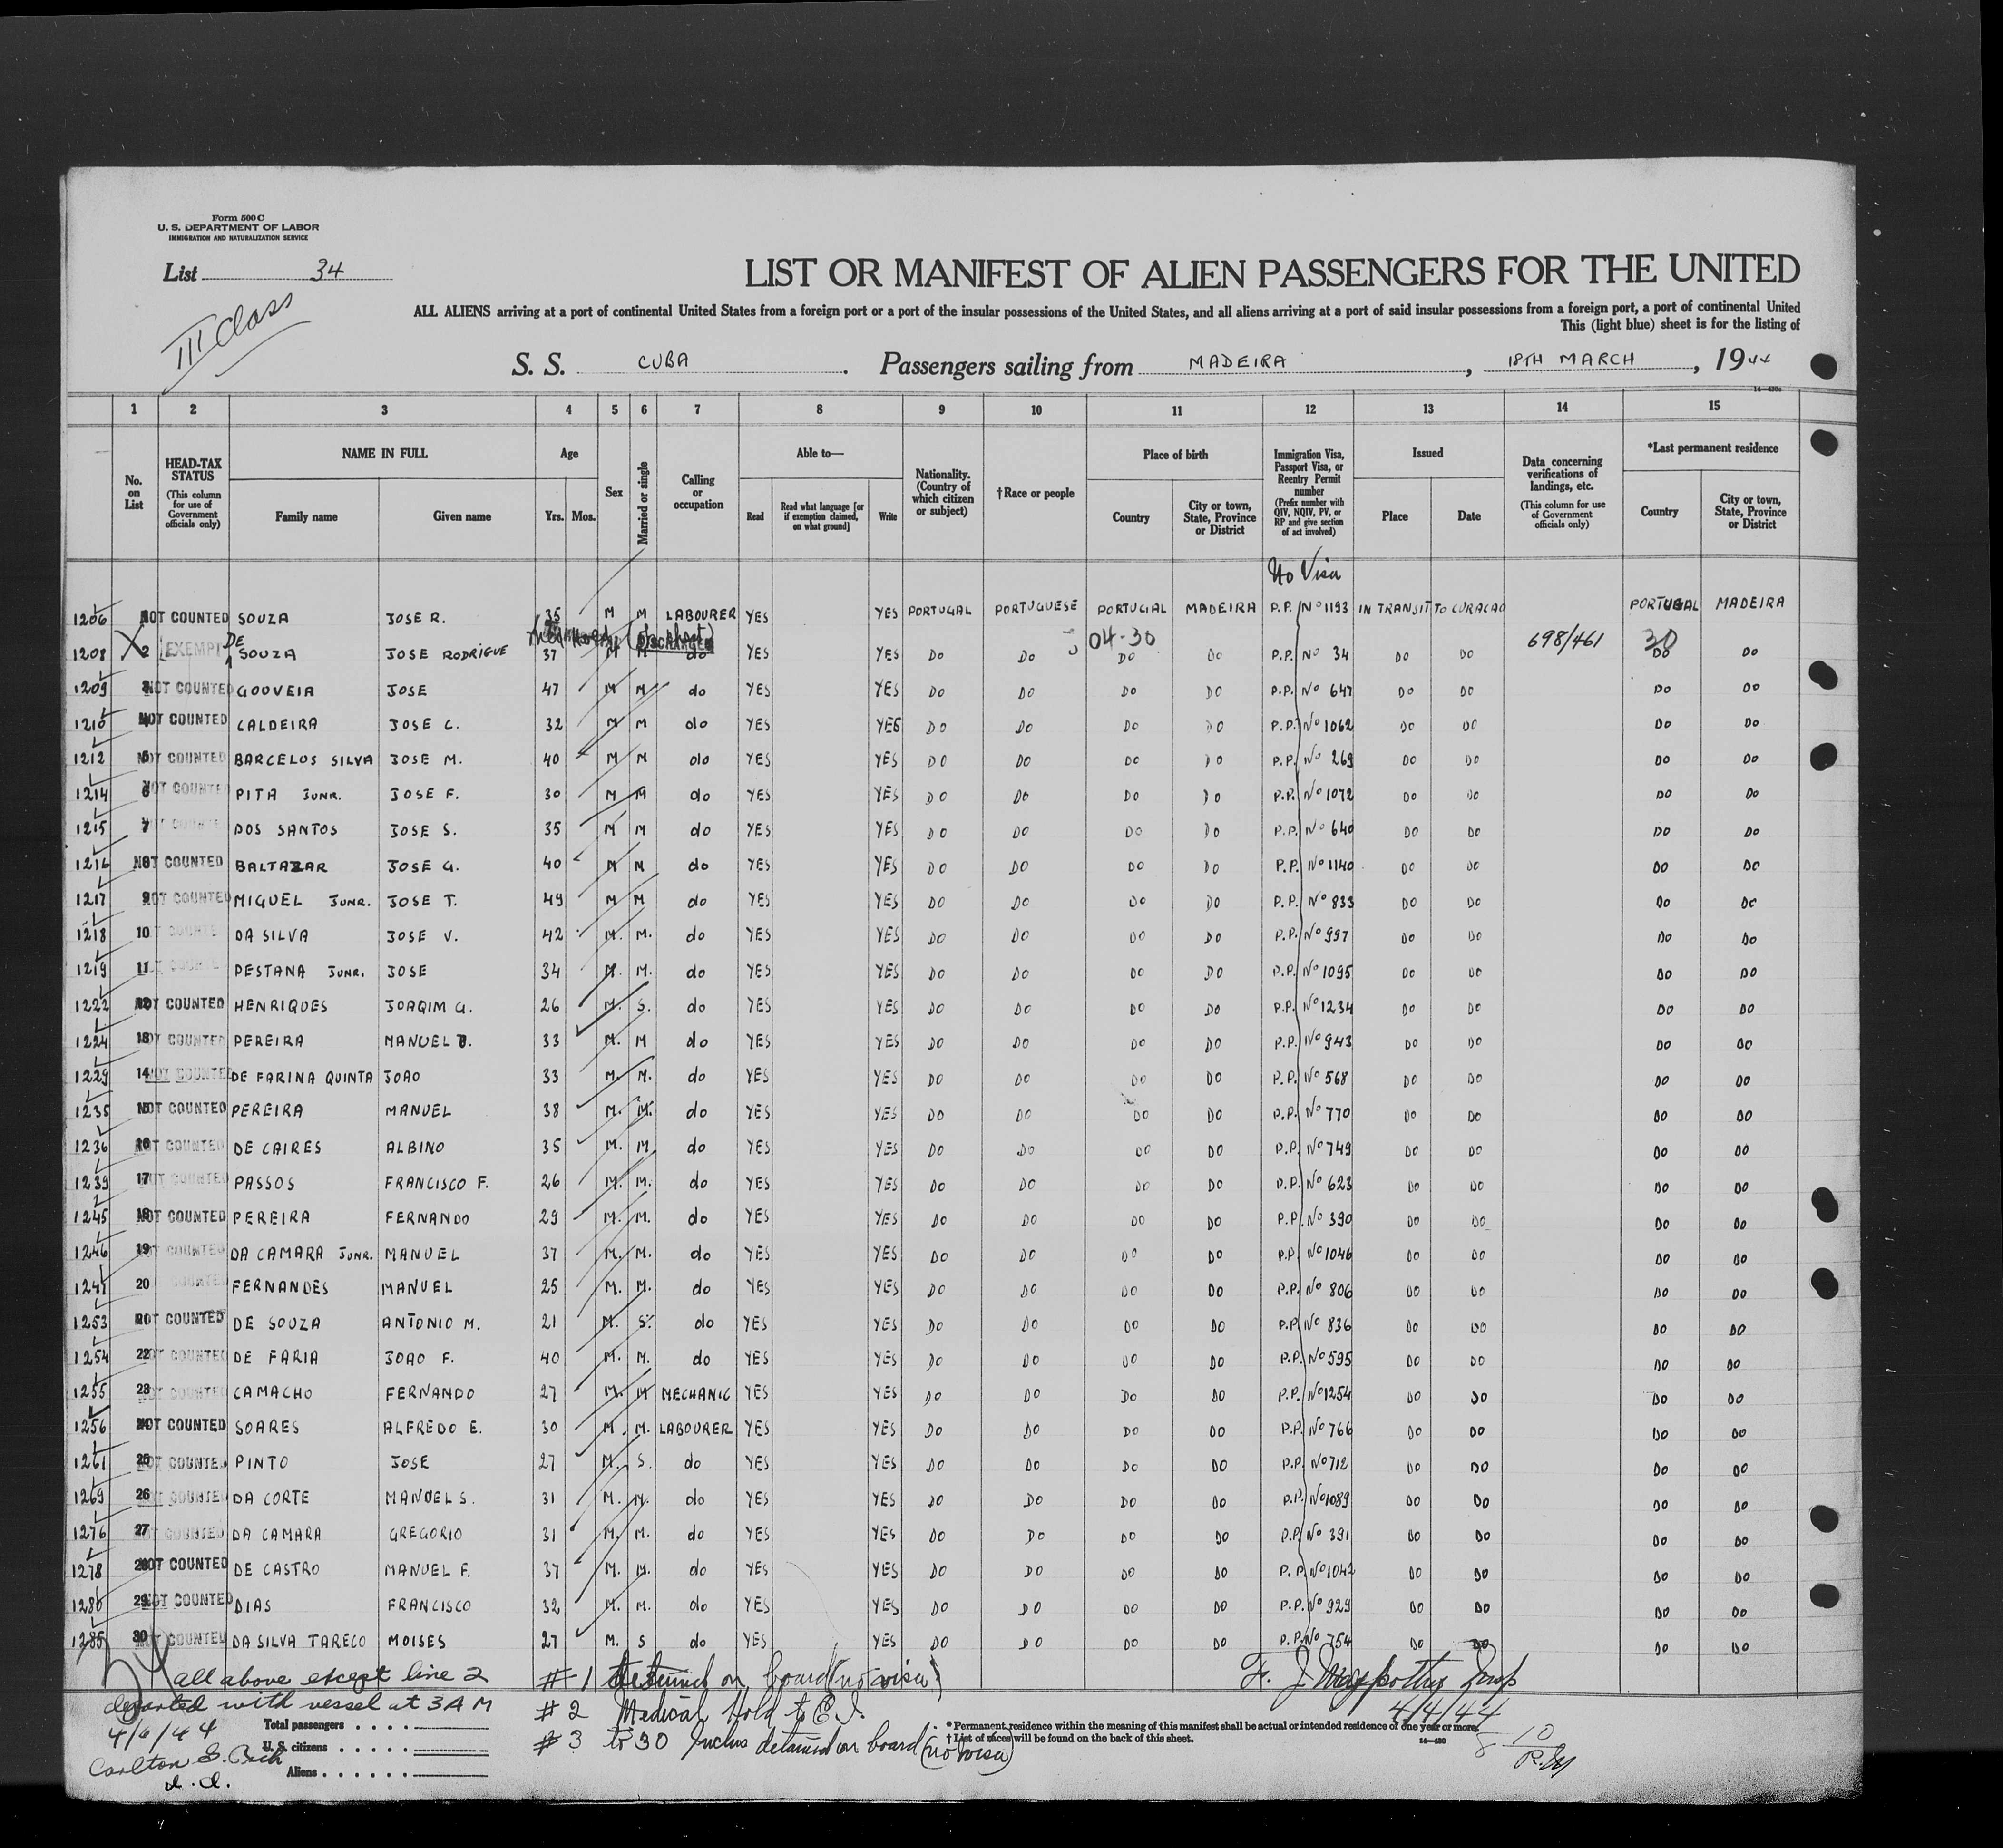 Form 500 C
U. S. DEPARTMENT OF LABOR
IMMIGRATION AND NATURALIZATION SERVICE
List 34
III Class
LIST OR MANIFEST OF ALIEN PASSENGERS FOR THE UNITED
ALL ALIENS arriving at a port of continental United States from a foreign port or a port of the insular possessions of the United States, and all aliens arriving at a port of said insular possessions from a foreign port, a port of continental United
This (light blue) sheet is for the listing of
S. S. CUBA. Passengers sailing from MADEIRA, 18TH MARCH, 1944
14—430a
1 2 3 4 5 6 7 8 9 10 11 12 13 14 15
No. on List
HEAD-TAX STATUS (This column for use of Government officials only)
NAME IN FULL
Family name Given name
Age
Yrs. Mos.
Sex
Married or single
Calling or occupation
Able to—
Read Read what language [or if exemption claimed, on what ground] Write
Nationality. (Country of which citizen or subject)
†Race or people
Place of birth
Country City or town, State, Province or District
Immigration Visa, Passport Visa, or Reentry Permit number (Prefix number with QIV, NQIV, PV, or RP and give section of act involved)
Issued
Place Date
Data concerning verifications of landings, etc. (This column for use of Government officials only)
*Last permanent residence
Country City or town, State, Province or District
No Visa
1206 NOT COUNTED SOUZA JOSE R. 35 M M LABOURER YES YES PORTUGAL PORTUGUESE PORTUGAL MADEIRA P.P. No 1193 IN TRANSIT TO CURACAO PORTUGAL MADEIRA
DISCHARGED 04-30 698/461 30
1208 2 EXEMPT DE SOUZA JOSE RODRIGUE 37 M M do YES YES DO DO DO DO P.P. No 34 DO DO DO DO
1209 3 NOT COUNTED GOUVEIA JOSE 47 M M do YES YES DO DO DO DO P.P. No 647 DO DO DO DO
1210 4 NOT COUNTED CALDEIRA JOSE C. 32 M M do YES YES DO DO DO DO P.P. No 1062 DO DO DO DO
1212 5 NOT COUNTED BARCELOS SILVA JOSE M. 40 M M do YES YES DO DO DO DO P.P. No 269 DO DO DO DO
1214 6 NOT COUNTED PITA JUNR. JOSE F. 30 M M do YES YES DO DO DO DO P.P. No 1072 DO DO DO DO
1215 7 DOS SANTOS JOSE S. 35 M M do YES YES DO DO DO DO P.P. No 640 DO DO DO DO
1216 8 NOT COUNTED BALTAZAR JOSE G. 40 M M do YES YES DO DO DO DO P.P. No 1140 DO DO DO DO
1217 9 NOT COUNTED MIGUEL JUNR. JOSE T. 49 M M do YES YES DO DO DO DO P.P. No 833 DO DO DO DO
1218 10 DA SILVA JOSE V. 42 M. M. do YES YES DO DO DO DO P.P. No 997 DO DO DO DO
1219 11 PESTANA JUNR. JOSE 34 M. M. do YES YES DO DO DO DO P.P. No 1095 DO DO DO DO
1222 12 NOT COUNTED HENRIQUES JOAQIM G. 26 M. S. do YES YES DO DO DO DO P.P. No 1234 DO DO DO DO
1224 13 NOT COUNTED PEREIRA MANUEL 33 M. M do YES YES DO DO DO DO P.P. No 943 DO DO DO DO
1229 14 NOT COUNTED DE FARINA QUINTA JOAO 33 M. M. do YES YES DO DO DO DO P.P. No 568 DO DO DO DO
1235 15 NOT COUNTED PEREIRA MANUEL 38 M. M. do YES YES DO DO DO DO P.P. No 770 DO DO DO DO
1236 16 NOT COUNTED DE CAIRES ALBINO 35 M. M. do YES YES DO DO DO DO P.P. No 749 DO DO DO DO
1239 17 NOT COUNTED PASSOS FRANCISCO F. 26 M. M. do YES YES DO DO DO DO P.P. No 623 DO DO DO DO
1245 18 NOT COUNTED PEREIRA FERNANDO 29 M. M. do YES YES DO DO DO DO P.P. No 390 DO DO DO DO
1246 19 NOT COUNTED DA CAMARA JUNR. MANUEL 37 M. M. do YES YES DO DO DO DO P.P. No 1046 DO DO DO DO
1247 20 COUNTED FERNANDES MANUEL 25 M. M. do YES YES DO DO DO DO P.P. No 806 DO DO DO DO
1253 21 NOT COUNTED DE SOUZA ANTONIO M. 21 M. S. do YES YES DO DO DO DO P.P. No 836 DO DO DO DO
1254 22 NOT COUNTED DE FARIA JOAO F. 40 M. M. do YES YES DO DO DO DO P.P. No 595 DO DO DO DO
1255 23 NOT COUNTED CAMACHO FERNANDO 27 M. M MECHANIC YES YES DO DO DO DO P.P. No 1254 DO DO DO DO
1256 24 NOT COUNTED SOARES ALFREDO E. 30 M. M. LABOURER YES YES DO DO DO DO P.P. No 766 DO DO DO DO
1261 25 NOT COUNTED PINTO JOSE 27 M. S. do YES YES DO DO DO DO P.P. No 712 DO DO DO DO
1269 26 NOT COUNTED DA CORTE MANUEL S. 31 M. M. do YES YES DO DO DO DO P.P. No 1089 DO DO DO DO
1276 27 NOT COUNTED DA CAMARA GREGORIO 31 M. M. do YES YES DO DO DO DO P.P. No 391 DO DO DO DO
1278 28 NOT COUNTED DE CASTRO MANUEL F. 37 M. M. do YES YES DO DO DO DO P.P. No 1042 DO DO DO DO
1280 29 NOT COUNTED DIAS FRANCISCO 32 M. M. do YES YES DO DO DO DO P.P. No 929 DO DO DO DO
1285 30 NOT COUNTED DA SILVA TARECO MOISES 27 M. S do YES YES DO DO DO DO P.P. No 754 DO DO DO DO
all above except line 2
departed with vessel at 3 AM
4/6/44
Carlton
Total passengers
U. S. citizens
Aliens
#1 detained on board (no visa)
#2 Medical Hold to E.I.
#3 to 30 Inclus detained on board (no visa)
F. J. Insp
4/4/44
* Permanent residence within the meaning of this manifest shall be actual or intended residence of one year or more.
† List of races will be found on the back of this sheet.
14—430
10